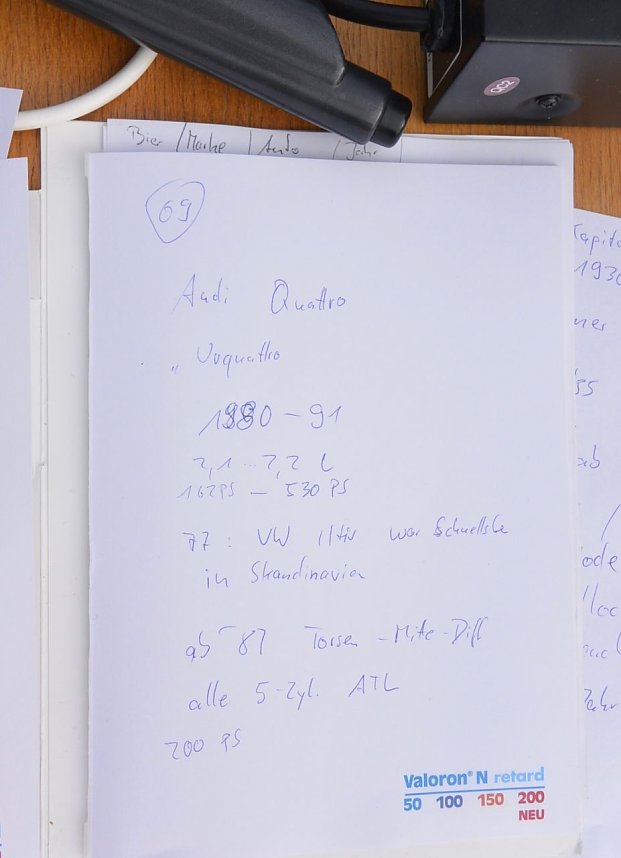 002
Bier / Marke / Auto / Jahr
69
Audi Quattro
" Urquattro
1980 - 91
2,1 ... 2,2 L
162 PS - 530 PS
77: VW Iltis war Schnellste
in Skandinavien
ab 87 Torsen - Mitte - Diff
alle 5-Zyl. ATL
200 PS
Valoron® N retard
50 100 150 200
NEU
193
ab